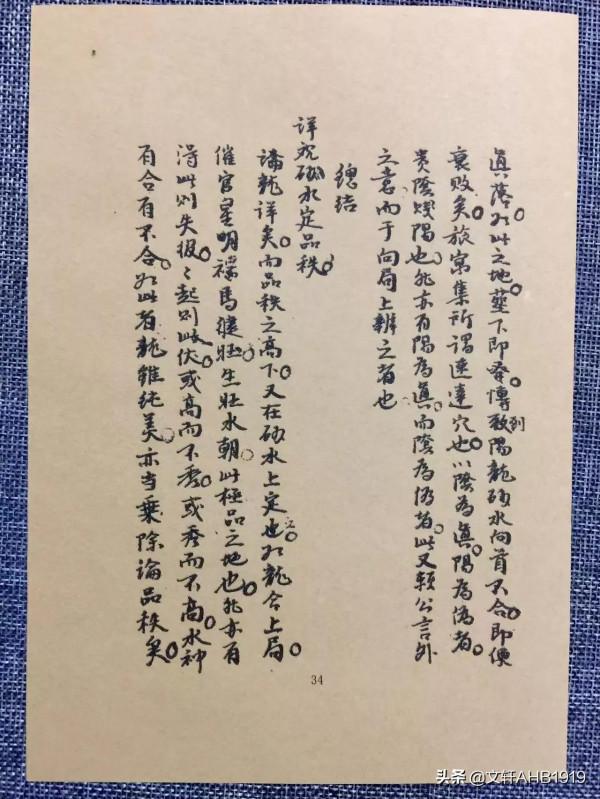 真落。如此之地。葬下即發。傳致陽龍砂水向首不合。即便
列
衰敗矣。旅寓集所謂速達穴也。以陰為眞。陽為偽者。
貴陰賤陽也。然亦有陽為眞。而陰為偽者。此又賴公言外
之意。而于向局上辨之者也
總结
详究砂水定品秩。
論龍详矣。而品秩之高下。又在砂水上定也。如龍合上局。
催官星明。禄馬健旺。生旺水朝。此極品之地也。然亦有
得此則失彼。彼起則此伏。或高而不秀。或秀而不高。水神
有合有不合。如此者龍雖純美。亦当乗除論品秩矣。
34
头条 @文轩AHB1919